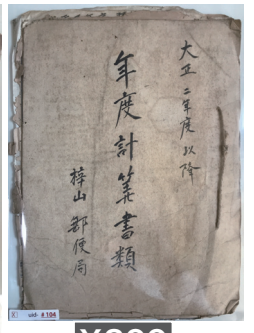 大正二年度以降
年度計算書類
梓山郵便局
uid- #104